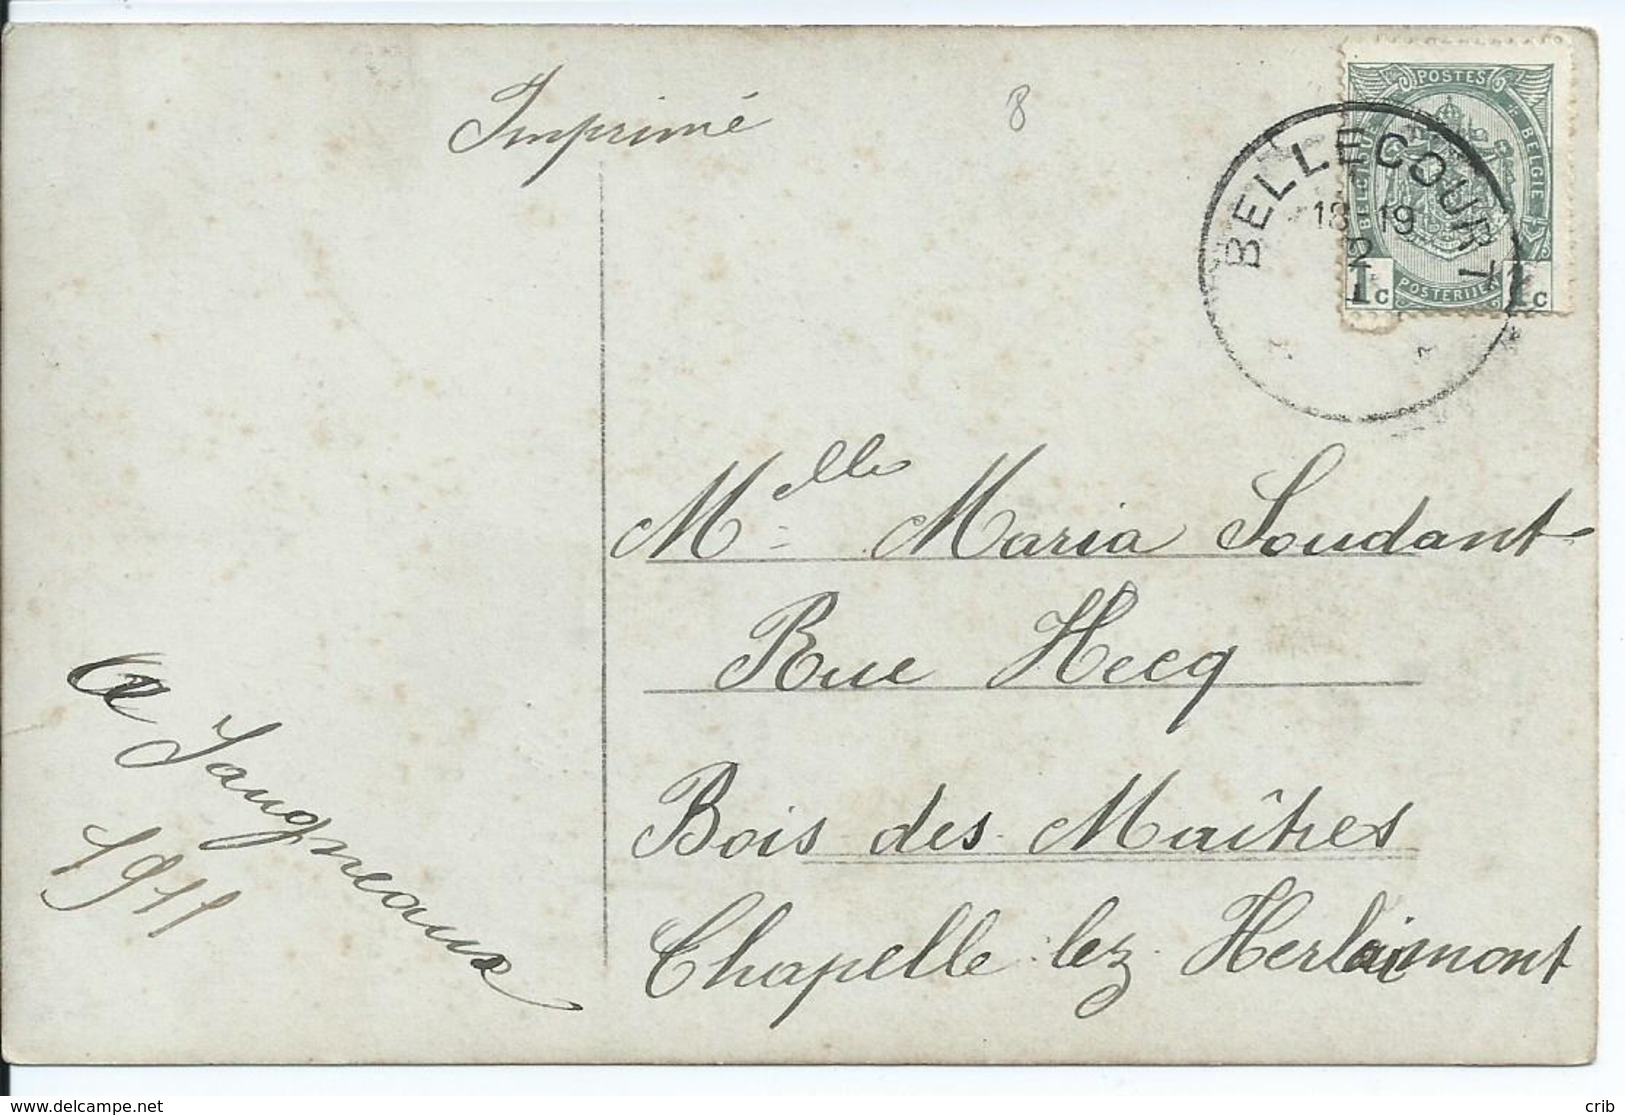 Imprimé
8
POSTES
BELGIE
BELGIQUE
POSTERIJEN
1c 1c
BELLECOURT
18-19
2
Melle Maria Soudant
Rue Hecq
Bois des Maîtres
Chapelle lez Herlaimont
Jaugneaux
1911
delcampe.net
crib